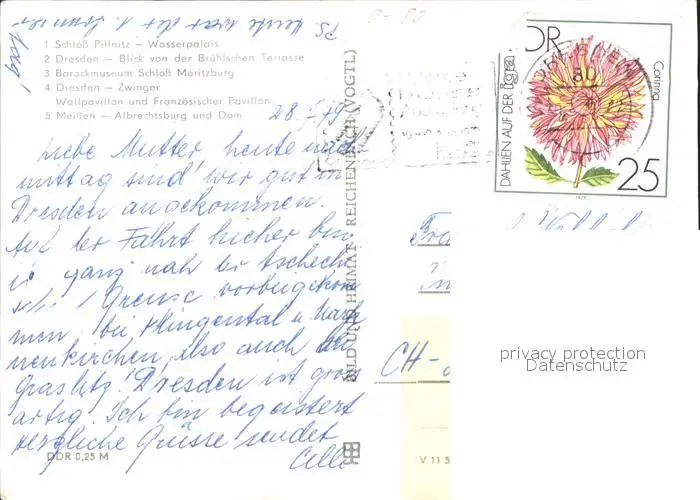 PS. Heute war der 1. Sommer-
tag!
1 Schloß Pillnitz – Wasserpalais
2 Dresden – Blick von der Brühlschen Terrasse
3 Barockmuseum Schloß Moritzburg
4 Dresden – Zwinger
Wallpavillon und Französischer Pavillon
5 Meißen – Albrechtsburg und Dom
28. 79
Liebe Mutter, heute nach
mittag sind wir gut in
Dresden angekommen.
Auf der Fahrt hierher bin
ich ganz nah der tschechi
Grenze vorbeigekom
men. bei Klingental u. Mark
neukirchen, also auch an
Graslitz! Dresden ist groß
artig. Ich bin begeistert
Herzliche Grüsse sendet
DDR 0,25 M
BILD UND HEIMAT REICHENBACH (VOGTL)
DDR
DAHLIEN AUF DER iga
Corinna
25
1975
Fra
in
CH-
V 11 5
privacy protection
Datenschutz